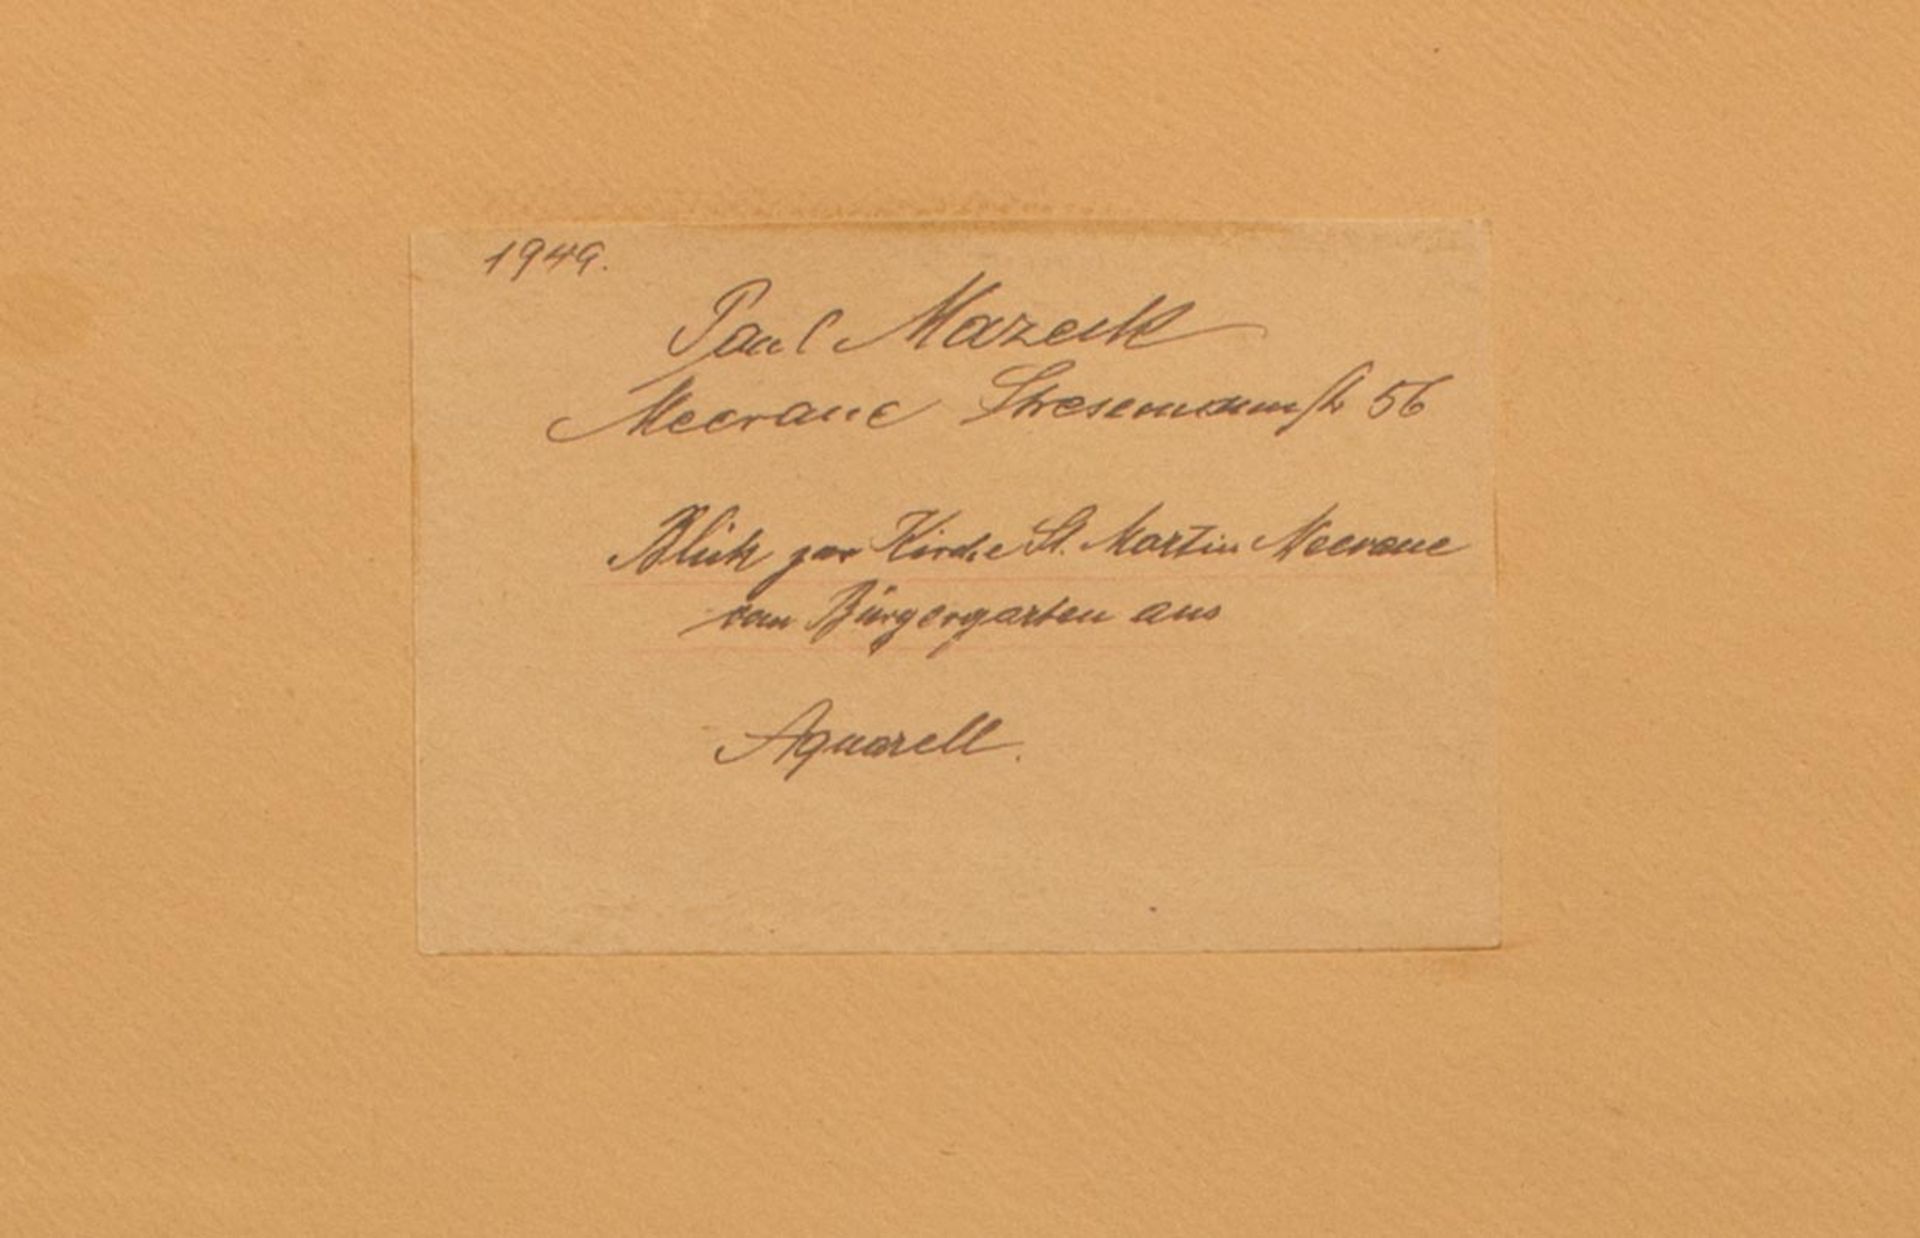 1949.
Paul Mazeck
Meerane Stresemannstr 56
Blick zur Kirche St. Martin Meerane
vom Bürgergarten aus
Aquarell.